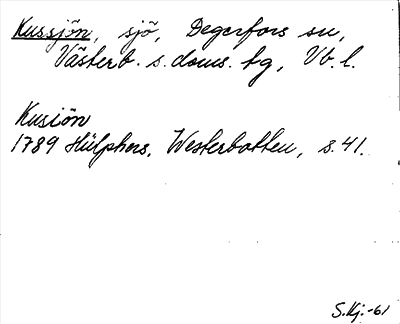 Kussjön, sjö, Degerfors sn,
Västerb. s. doms. tg, Vb. l.
Kusiön
1789 Hülphers, Westerbotten, s. 41.
S.Kj.-61